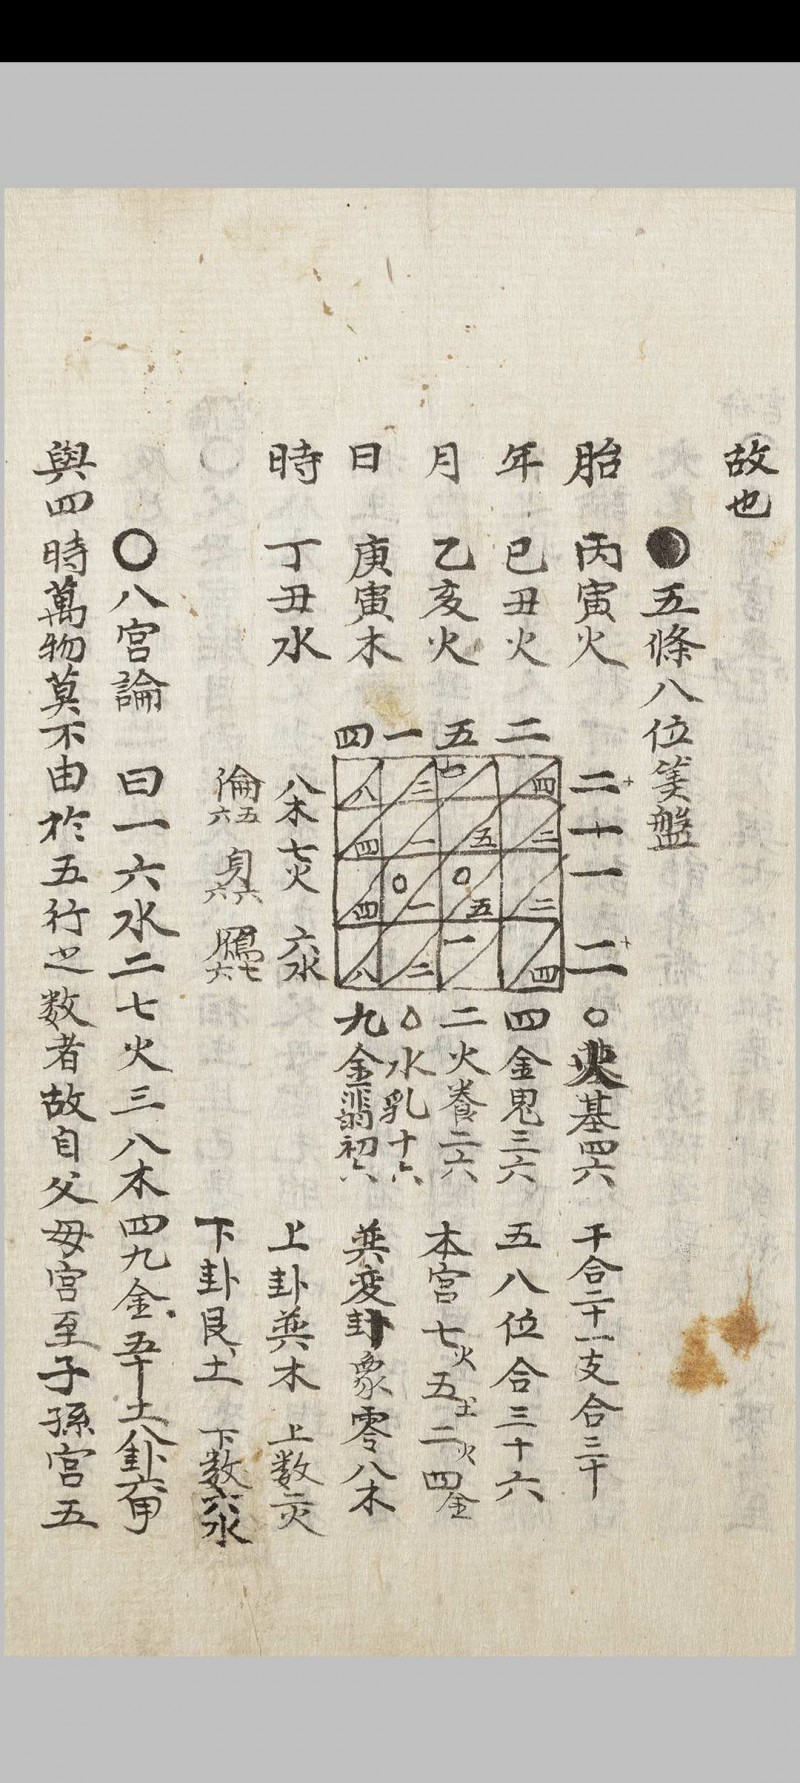 故也
五條八位筭盤
胎 丙寅火 二十一二 〇 基四六 干合二十一支合三十
年 已丑火 二 四金鬼三六 五八位合三十六
月 乙亥火 五 二火養二六 本宮七火五土二火四金
日 庚寅木 一 〇水乳十六
四 九金翡初六 兼変卦象零八木
四 二 五 四
三 二 五 二
八 四 四 八
二 一 一 三
〇 〇
時 丁丑水 八木七火六水 上卦兼木 上数二火
倫五六 身六六 鵬七六 下卦艮土 下数六水
〇八宮論 曰一六水二七火三八木四九金五十土八卦六甲
與四時萬物莫不由於五行之数者故自父母宮至子孫宮五